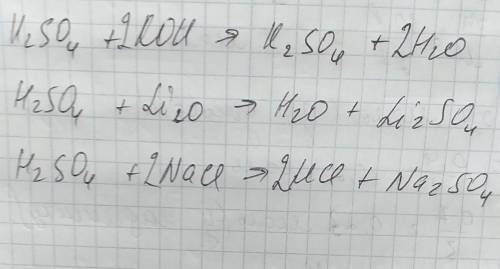 H₂SO₄ + 2KOH → K₂SO₄ + 2H₂O
H₂SO₄ + Li₂O → H₂O + Li₂SO₄
H₂SO₄ + 2NaCl → 2HCl + Na₂SO₄